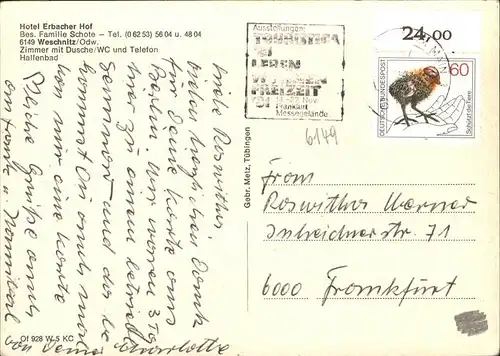 Hotel Erbacher Hof
Bes. Familie Schote – Tel. (0 62 53) 56 04 u. 48 04
6149 Weschnitz/Odw.
Zimmer mit Dusche/WC und Telefon
Hallenbad
Liebe Roswitha,
vielen herzlichen Dank
für Deine Karte aus
Berlin. Wir waren 3 Tg
hier zu einem
Seminar und da be
kommst Du auch mal
von mir eine Karte
Herzliche Grüße auch
an Frank u. Hannibal
von Deiner Charlotte
Of 928 W 5 KC
Gebr. Metz, Tübingen
Ausstellungen
TOURISTICA
'81
LEBEN
WOHNEN
FREIZEIT
'81 Nov.
Frankfurt
Messegelände
6149
24,00
DEUTSCHE BUNDESPOST
60
Schützt die Tiere
Frau
Roswitha Werner
Inheidener str. 71
6000 Frankfurt